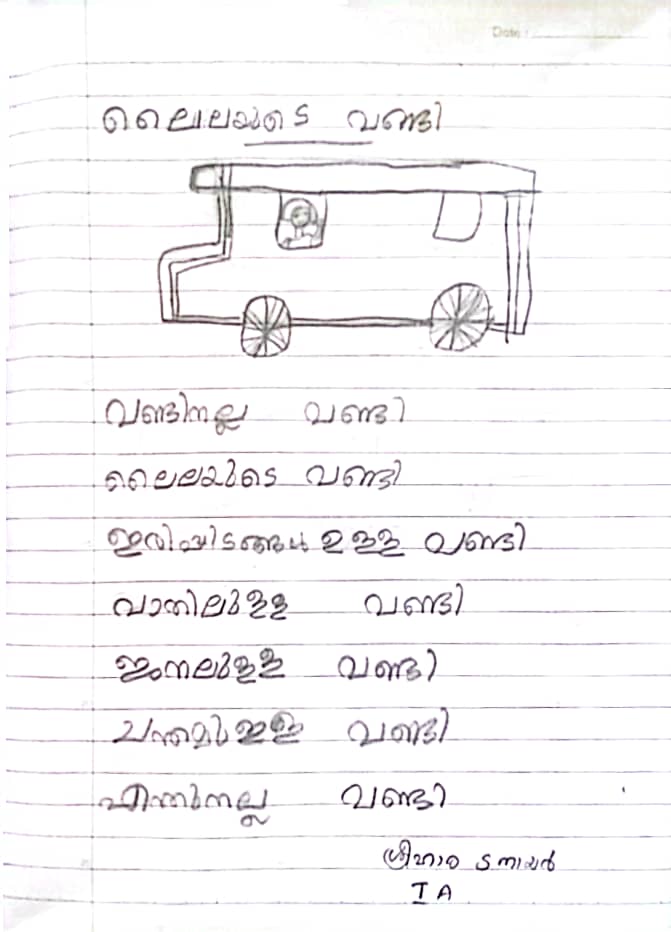 Date :
ലൈലയുടെ വണ്ടി
വണ്ടിനല്ല വണ്ടി
ലൈലയുടെ വണ്ടി
ഇരിപ്പിടങ്ങൾ ഉള്ള വണ്ടി
വാതിലുള്ള വണ്ടി
ജനലുള്ള വണ്ടി
ചന്തമുള്ള വണ്ടി
എന്തുനല്ല വണ്ടി
I A